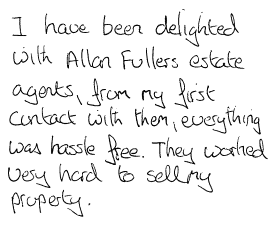 I have been delighted
with Allan Fullers estate
agents, from my first
contact with them, everything
was hassle free. They worked
very hard to sell my
property.